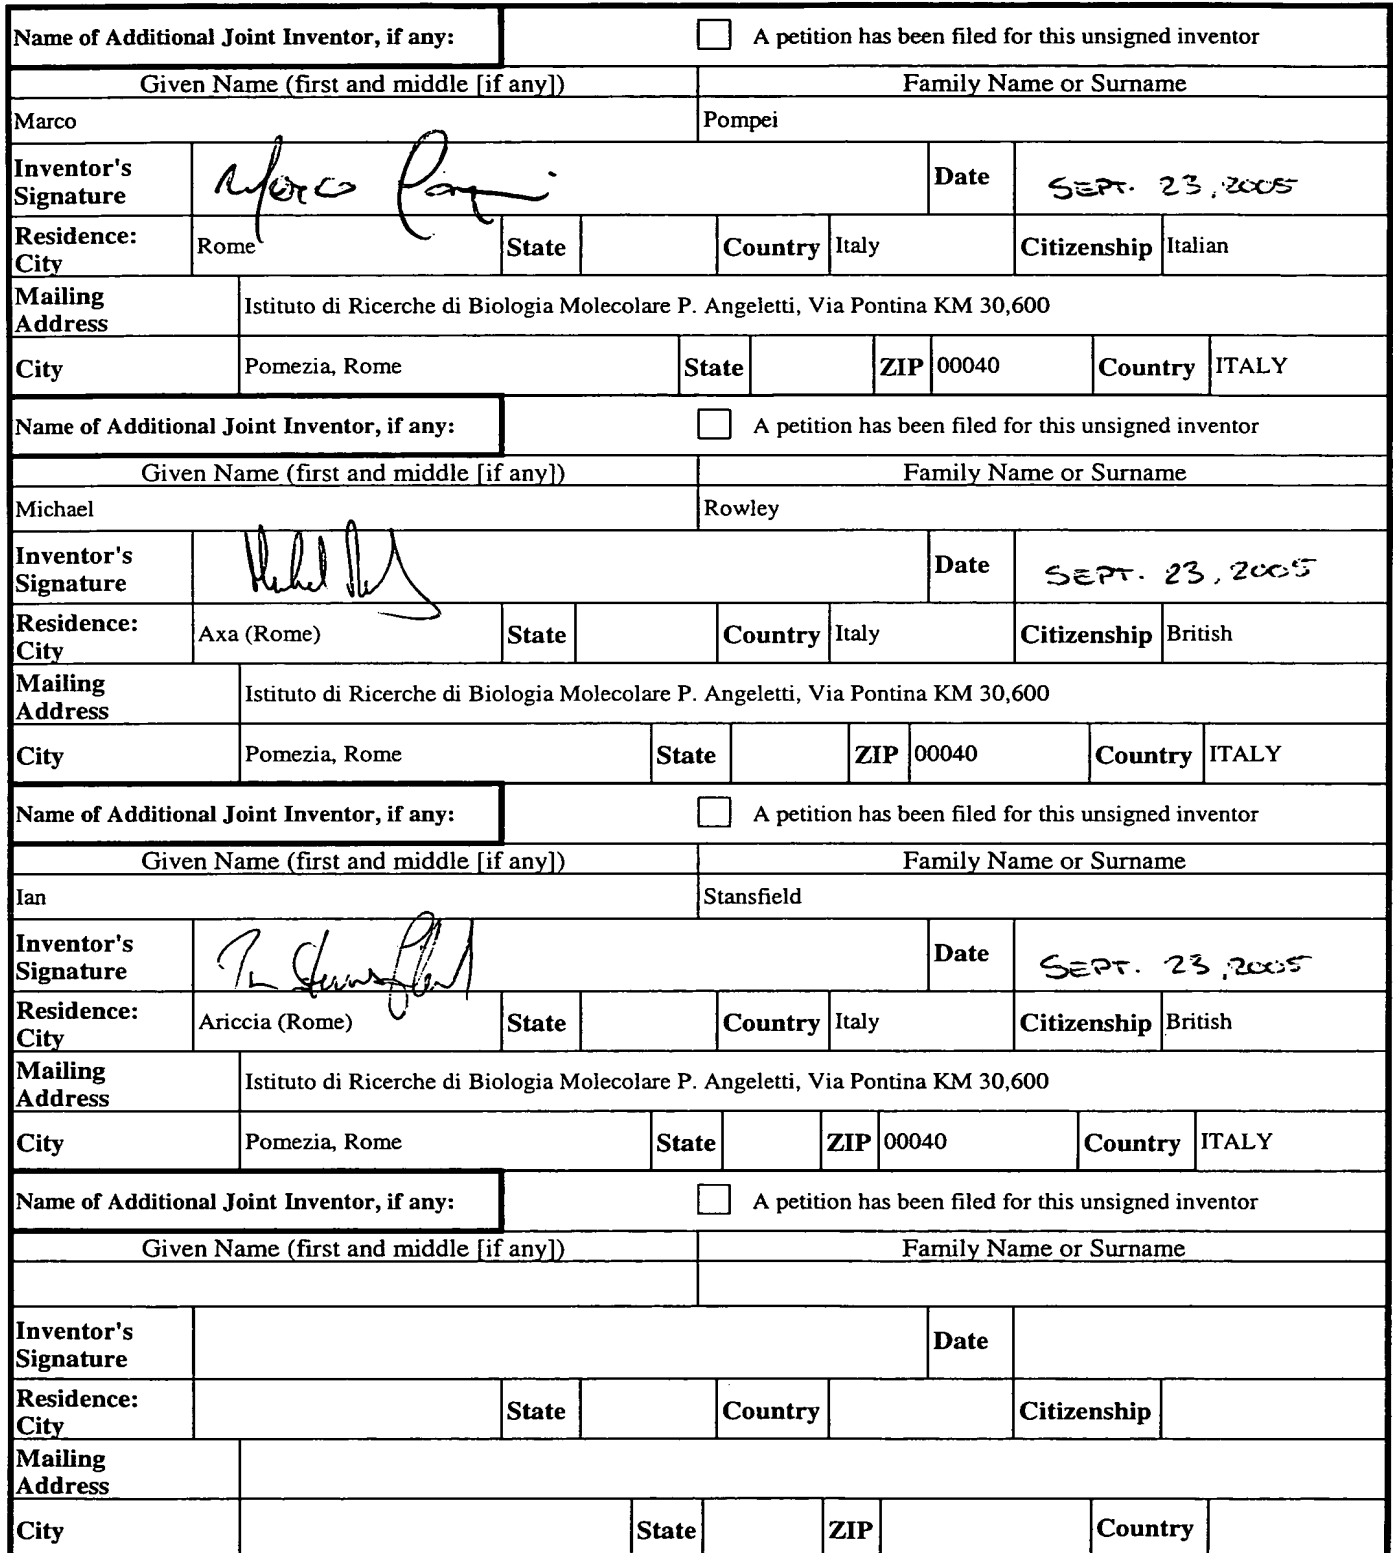 Name of Additional Joint Inventor, if any: A petition has been filed for this unsigned inventor
Given Name (first and middle [if any]) Family Name or Surname
Marco Pompei
Inventor's Signature Marco Pompei Date SEPT. 23, 2005
Residence: City Rome State Country Italy Citizenship Italian
Mailing Address Istituto di Ricerche di Biologia Molecolare P. Angeletti, Via Pontina KM 30,600
City Pomezia, Rome State ZIP 00040 Country ITALY
Name of Additional Joint Inventor, if any: A petition has been filed for this unsigned inventor
Given Name (first and middle [if any]) Family Name or Surname
Michael Rowley
Inventor's Signature Date SEPT. 23, 2005
Residence: City Axa (Rome) State Country Italy Citizenship British
Mailing Address Istituto di Ricerche di Biologia Molecolare P. Angeletti, Via Pontina KM 30,600
City Pomezia, Rome State ZIP 00040 Country ITALY
Name of Additional Joint Inventor, if any: A petition has been filed for this unsigned inventor
Given Name (first and middle [if any]) Family Name or Surname
Ian Stansfield
Inventor's Signature Ian Stansfield Date SEPT. 23, 2005
Residence: City Ariccia (Rome) State Country Italy Citizenship British
Mailing Address Istituto di Ricerche di Biologia Molecolare P. Angeletti, Via Pontina KM 30,600
City Pomezia, Rome State ZIP 00040 Country ITALY
Name of Additional Joint Inventor, if any: A petition has been filed for this unsigned inventor
Given Name (first and middle [if any]) Family Name or Surname
Inventor's Signature Date
Residence: City State Country Citizenship
Mailing Address
City State ZIP Country